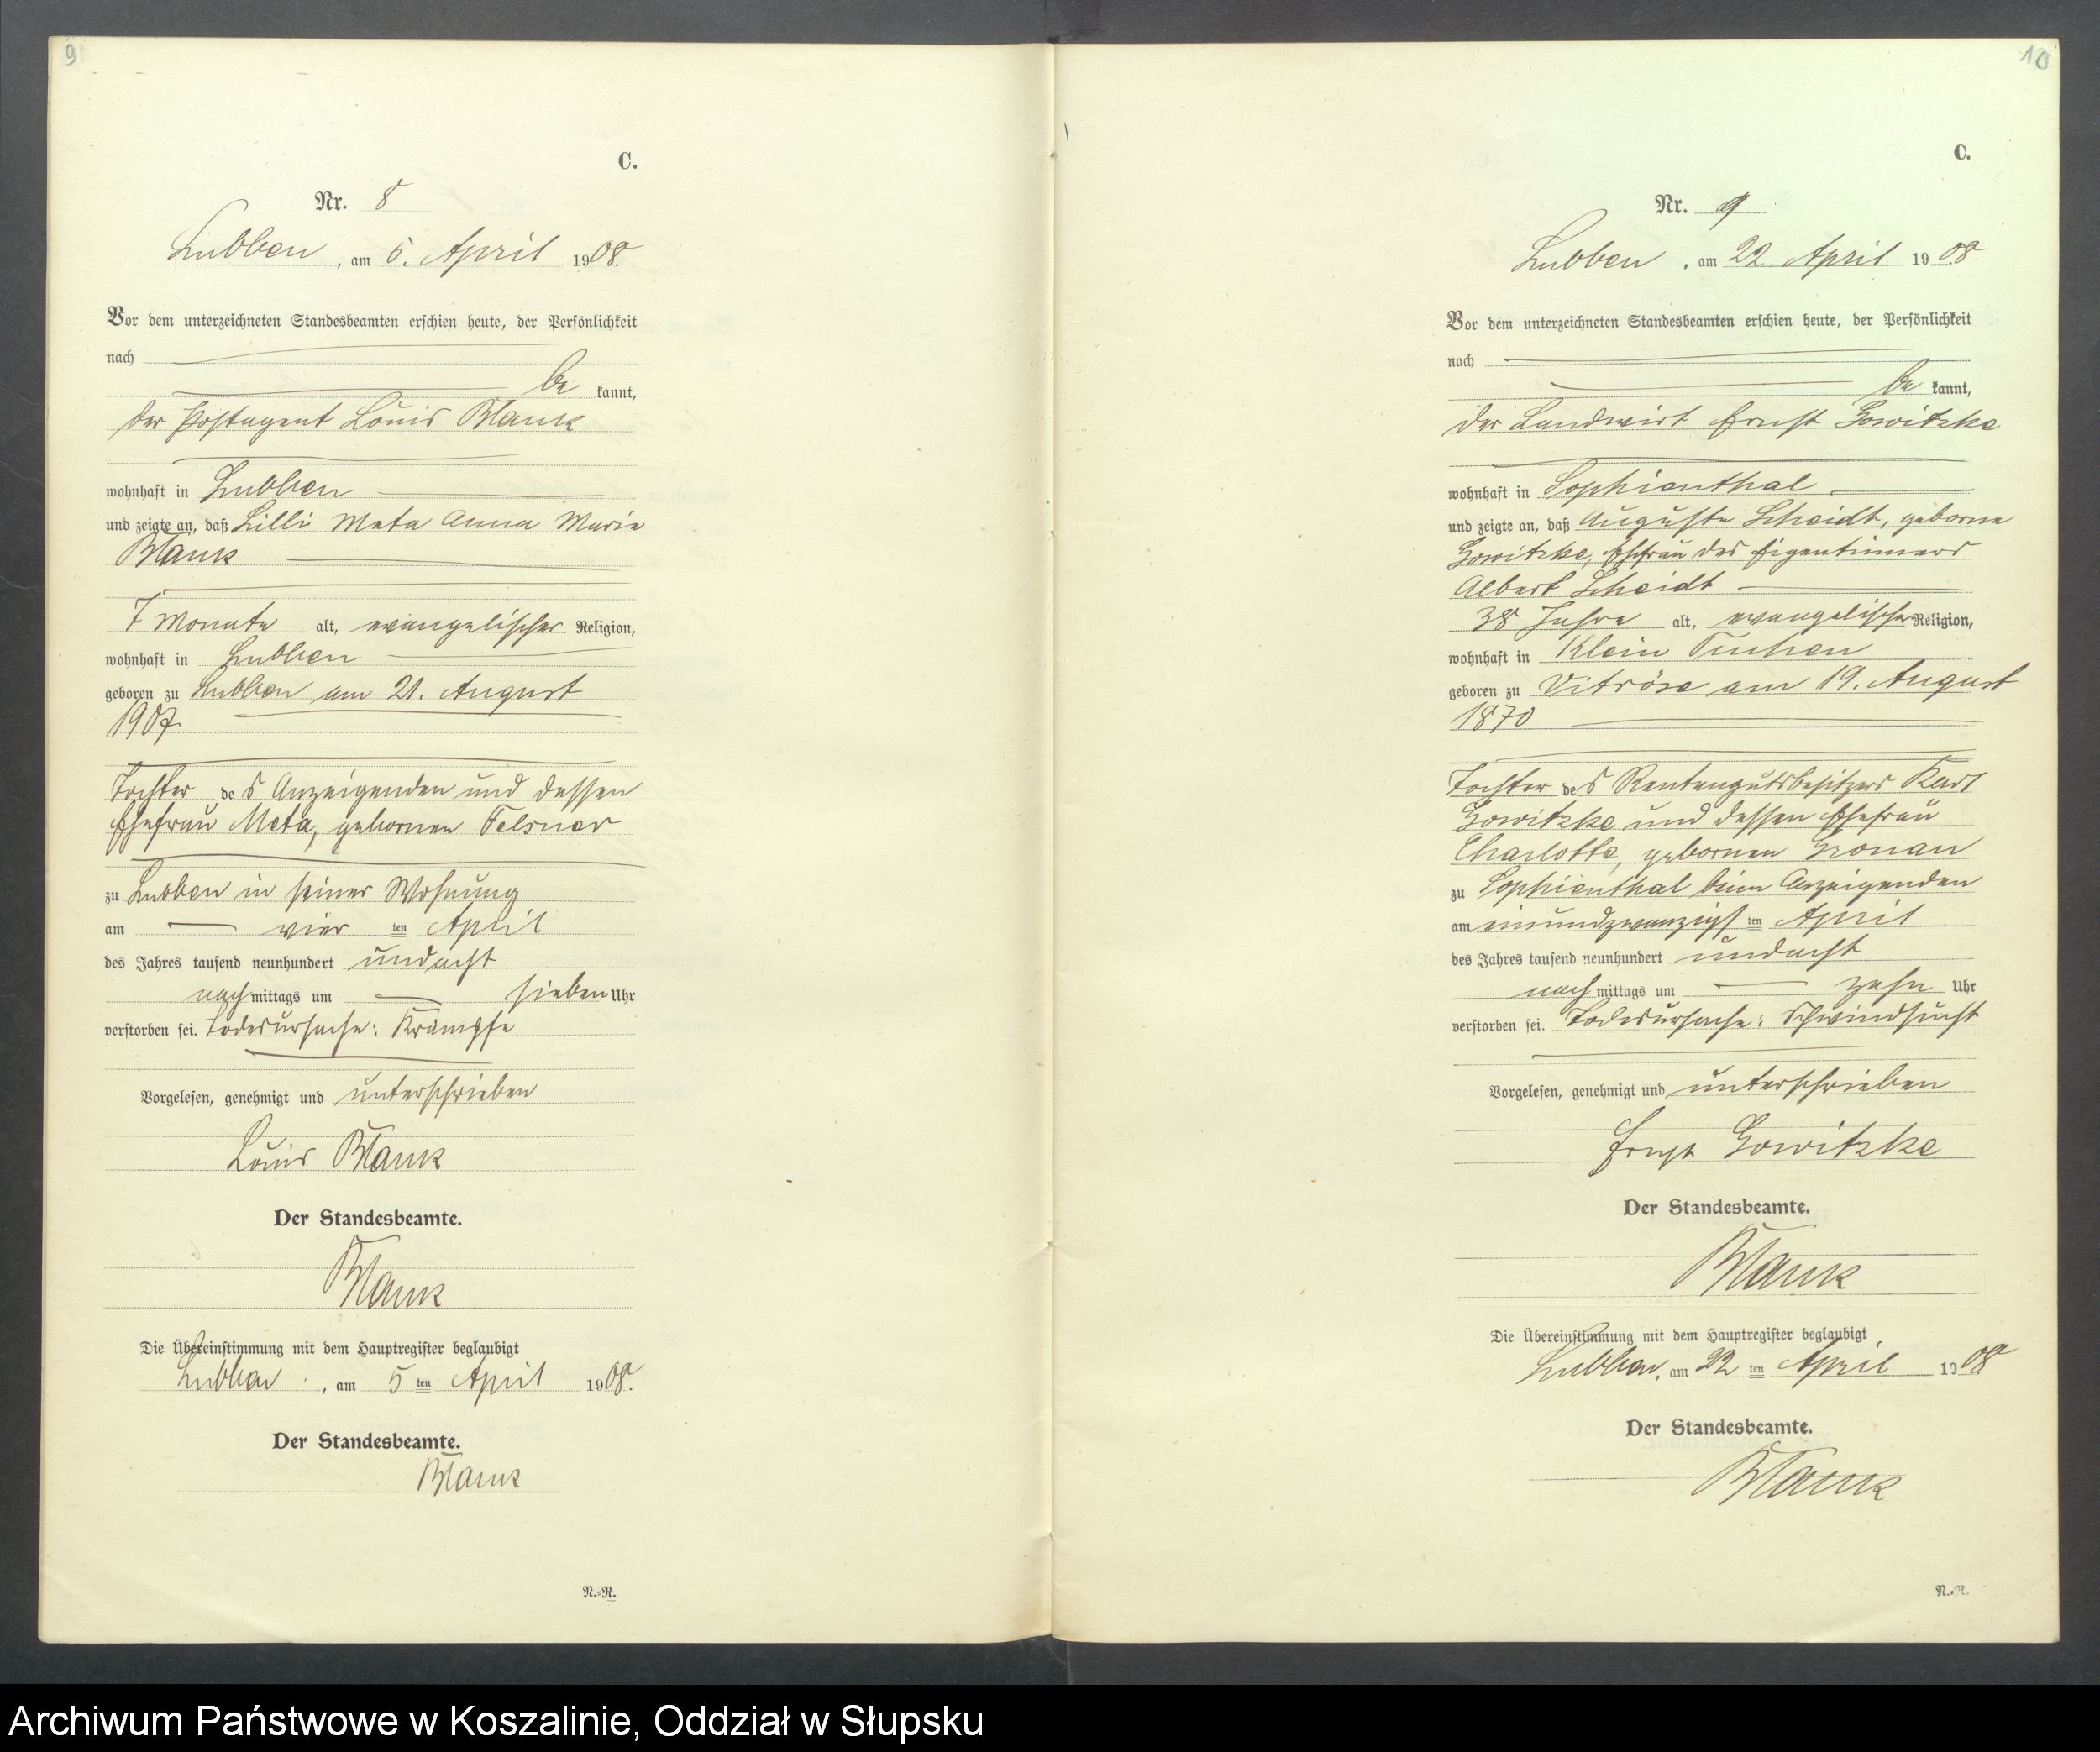 9
C.
Nr. 8
Lubben, am 5. April 1908.
Vor dem unterzeichneten Standesbeamten erschien heute, der Persönlichkeit
nach
be kannt,
der Postagent Louis Blank
wohnhaft in Lubben
und zeigte an, daß Lilli Meta Anna Marie
Blank
7 Monate alt, evangelischer Religion,
wohnhaft in Lubben
geboren zu Lubben am 21. August
1907.
Tochter des Anzeigenden und dessen
Ehefrau Meta, gebornen Felsner
zu Lubben in seiner Wohnung
am vier ten April
des Jahres tausend neunhundert undacht
nachmittags um sieben Uhr
verstorben sei. Todesursache: Krämpfe
Vorgelesen, genehmigt und unterschrieben
Louis Blank
Der Standesbeamte.
Blank
Die Übereinstimmung mit dem Hauptregister beglaubigt
Lubben, am 5 ten April 1908.
Der Standesbeamte.
Blank
N.=R.
10
C.
Nr. 9
Lubben, am 22 April 1908
Vor dem unterzeichneten Standesbeamten erschien heute, der Persönlichkeit
nach
be kannt,
der Landwirt Ernst Gowitzke
wohnhaft in Sophienthal
und zeigte an, daß Auguste Scheidt, geborne
Gowitzke, Ehefrau des Eigentümers
Albert Scheidt
38 Jahre alt, evangelischer Religion,
wohnhaft in Klein Tuchen
geboren zu Vitröse am 19. August
1870
Tochter des Rentengutsbesitzers Karl
Gowitzke und dessen Ehefrau
Charlotte, gebornen Gronau
zu Sophienthal beim Anzeigenden
am einundzwanzigsten April
des Jahres tausend neunhundert undacht
nachmittags um zehn Uhr
verstorben sei. Todesursache: Schwindsucht
Vorgelesen, genehmigt und unterschrieben
Ernst Gowitzke
Der Standesbeamte.
Blank
Die Übereinstimmung mit dem Hauptregister beglaubigt
Lubben, am 22 ten April 1908
Der Standesbeamte.
Blank
N.=R.
Archiwum Państwowe w Koszalinie, Oddział w Słupsku